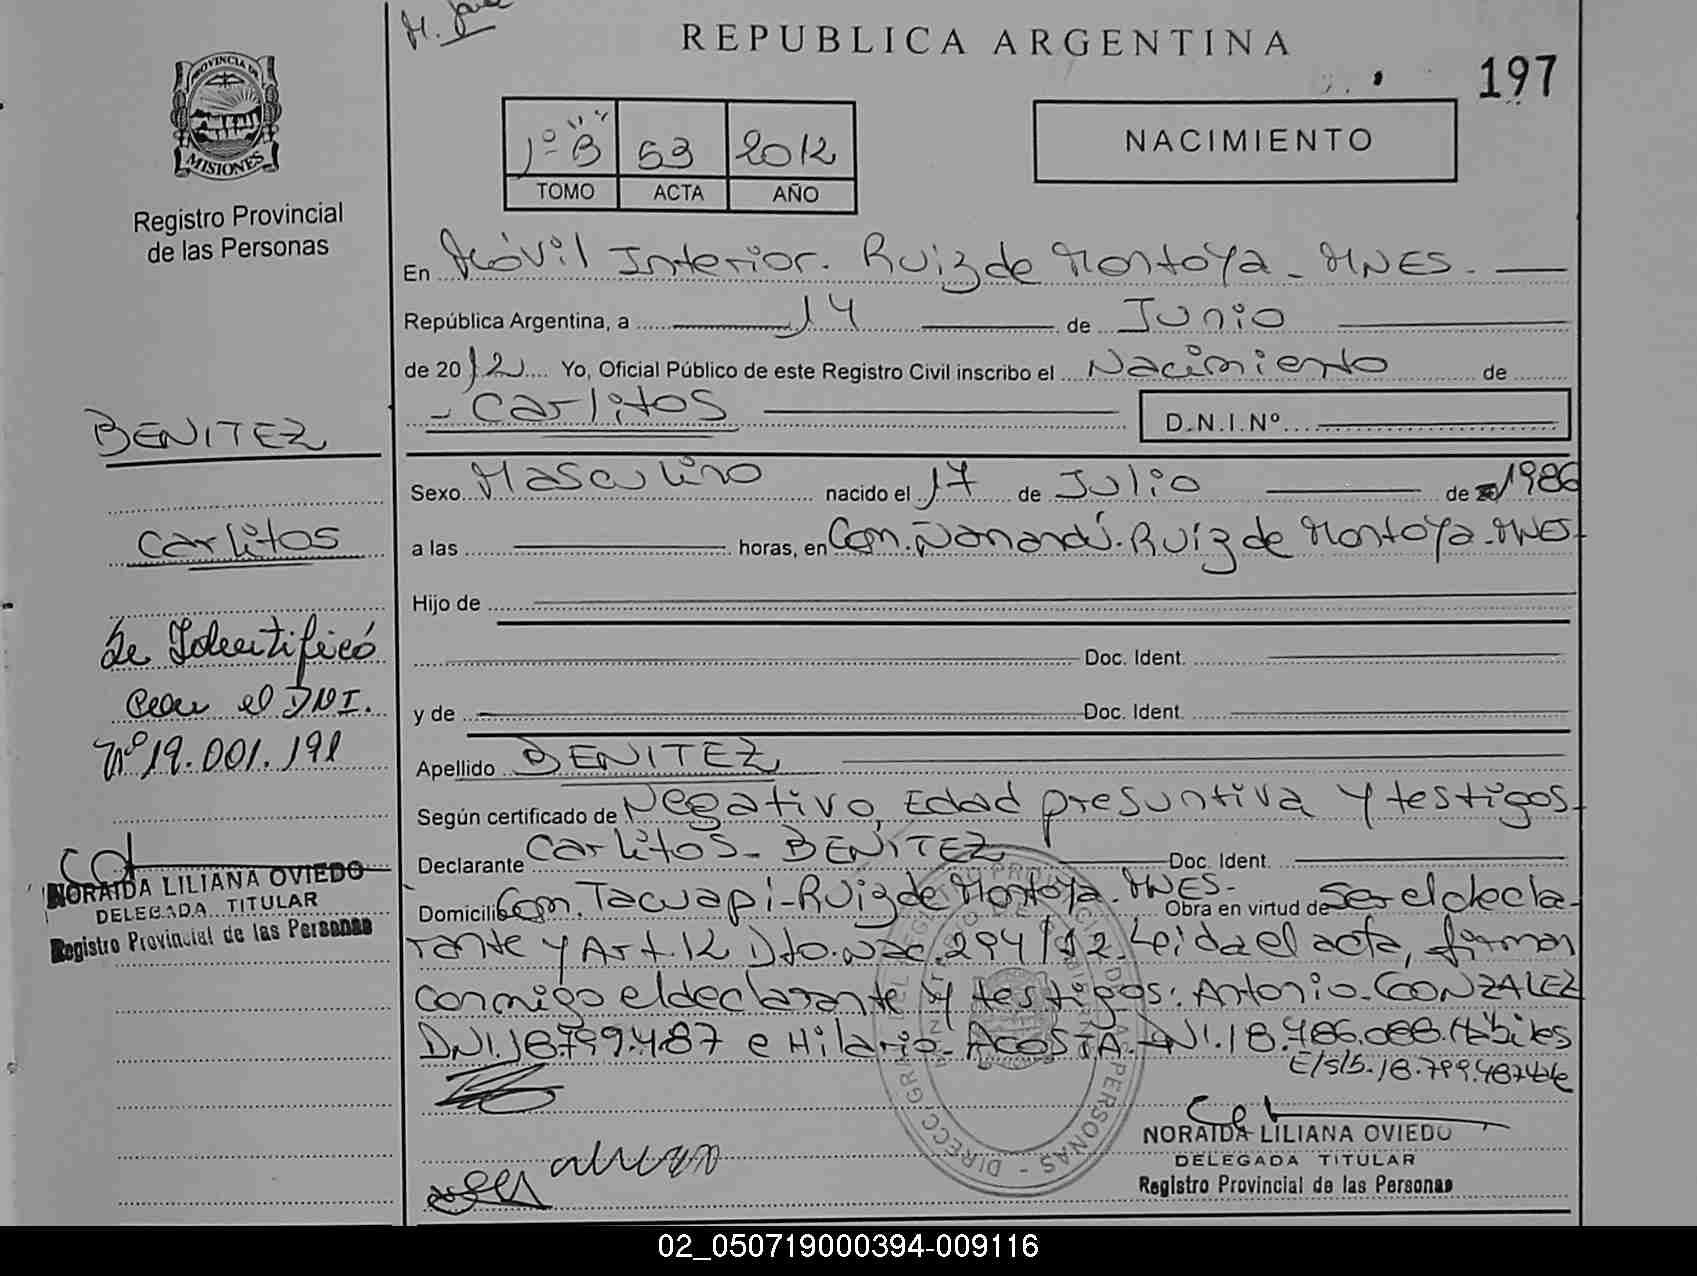 REPUBLICA ARGENTINA
197
PROVINCIA DE
MISIONES
Registro Provincial
de las Personas
1º "B" 53 2012
TOMO ACTA AÑO
NACIMIENTO
En Móvil Interior. Ruiz de Montoya - MNES.
República Argentina, a 14 de Junio
de 2012 Yo, Oficial Público de este Registro Civil inscribo el Nacimiento de
- Carlitos
D.N.I.Nº
Sexo Masculino nacido el 17 de Julio de 1986
a las horas, en Com. Ñanandú. Ruiz de Montoya - MNES
Hijo de
Doc. Ident.
y de Doc. Ident.
Apellido BENITEZ
Según certificado de Negativo, Edad presuntiva y testigos.
Declarante Carlitos - BENITEZ Doc. Ident.
Domicilio Com. Tacuapi - Ruiz de Montoya. MNES - Obra en virtud de ser el decla-
rante y Art. 12 Dto. Nac. 294/12. Leida el acta, firman
conmigo el declarante y testigos: Antonio - GONZALEZ
DNI. 18.799.487 e Hilario - ACOSTA - DNI. 18.786.088. Hábiles
E/s/b. 18.799.487 vale
NORAIDA LILIANA OVIEDO
DELEGADA TITULAR
Registro Provincial de las Personas
BENITEZ
Carlitos
Se Identificó
con el DNI.
Nº 19.001.191
NORAIDA LILIANA OVIEDO
DELEGADA TITULAR
Registro Provincial de las Personas
02_050719000394-009116